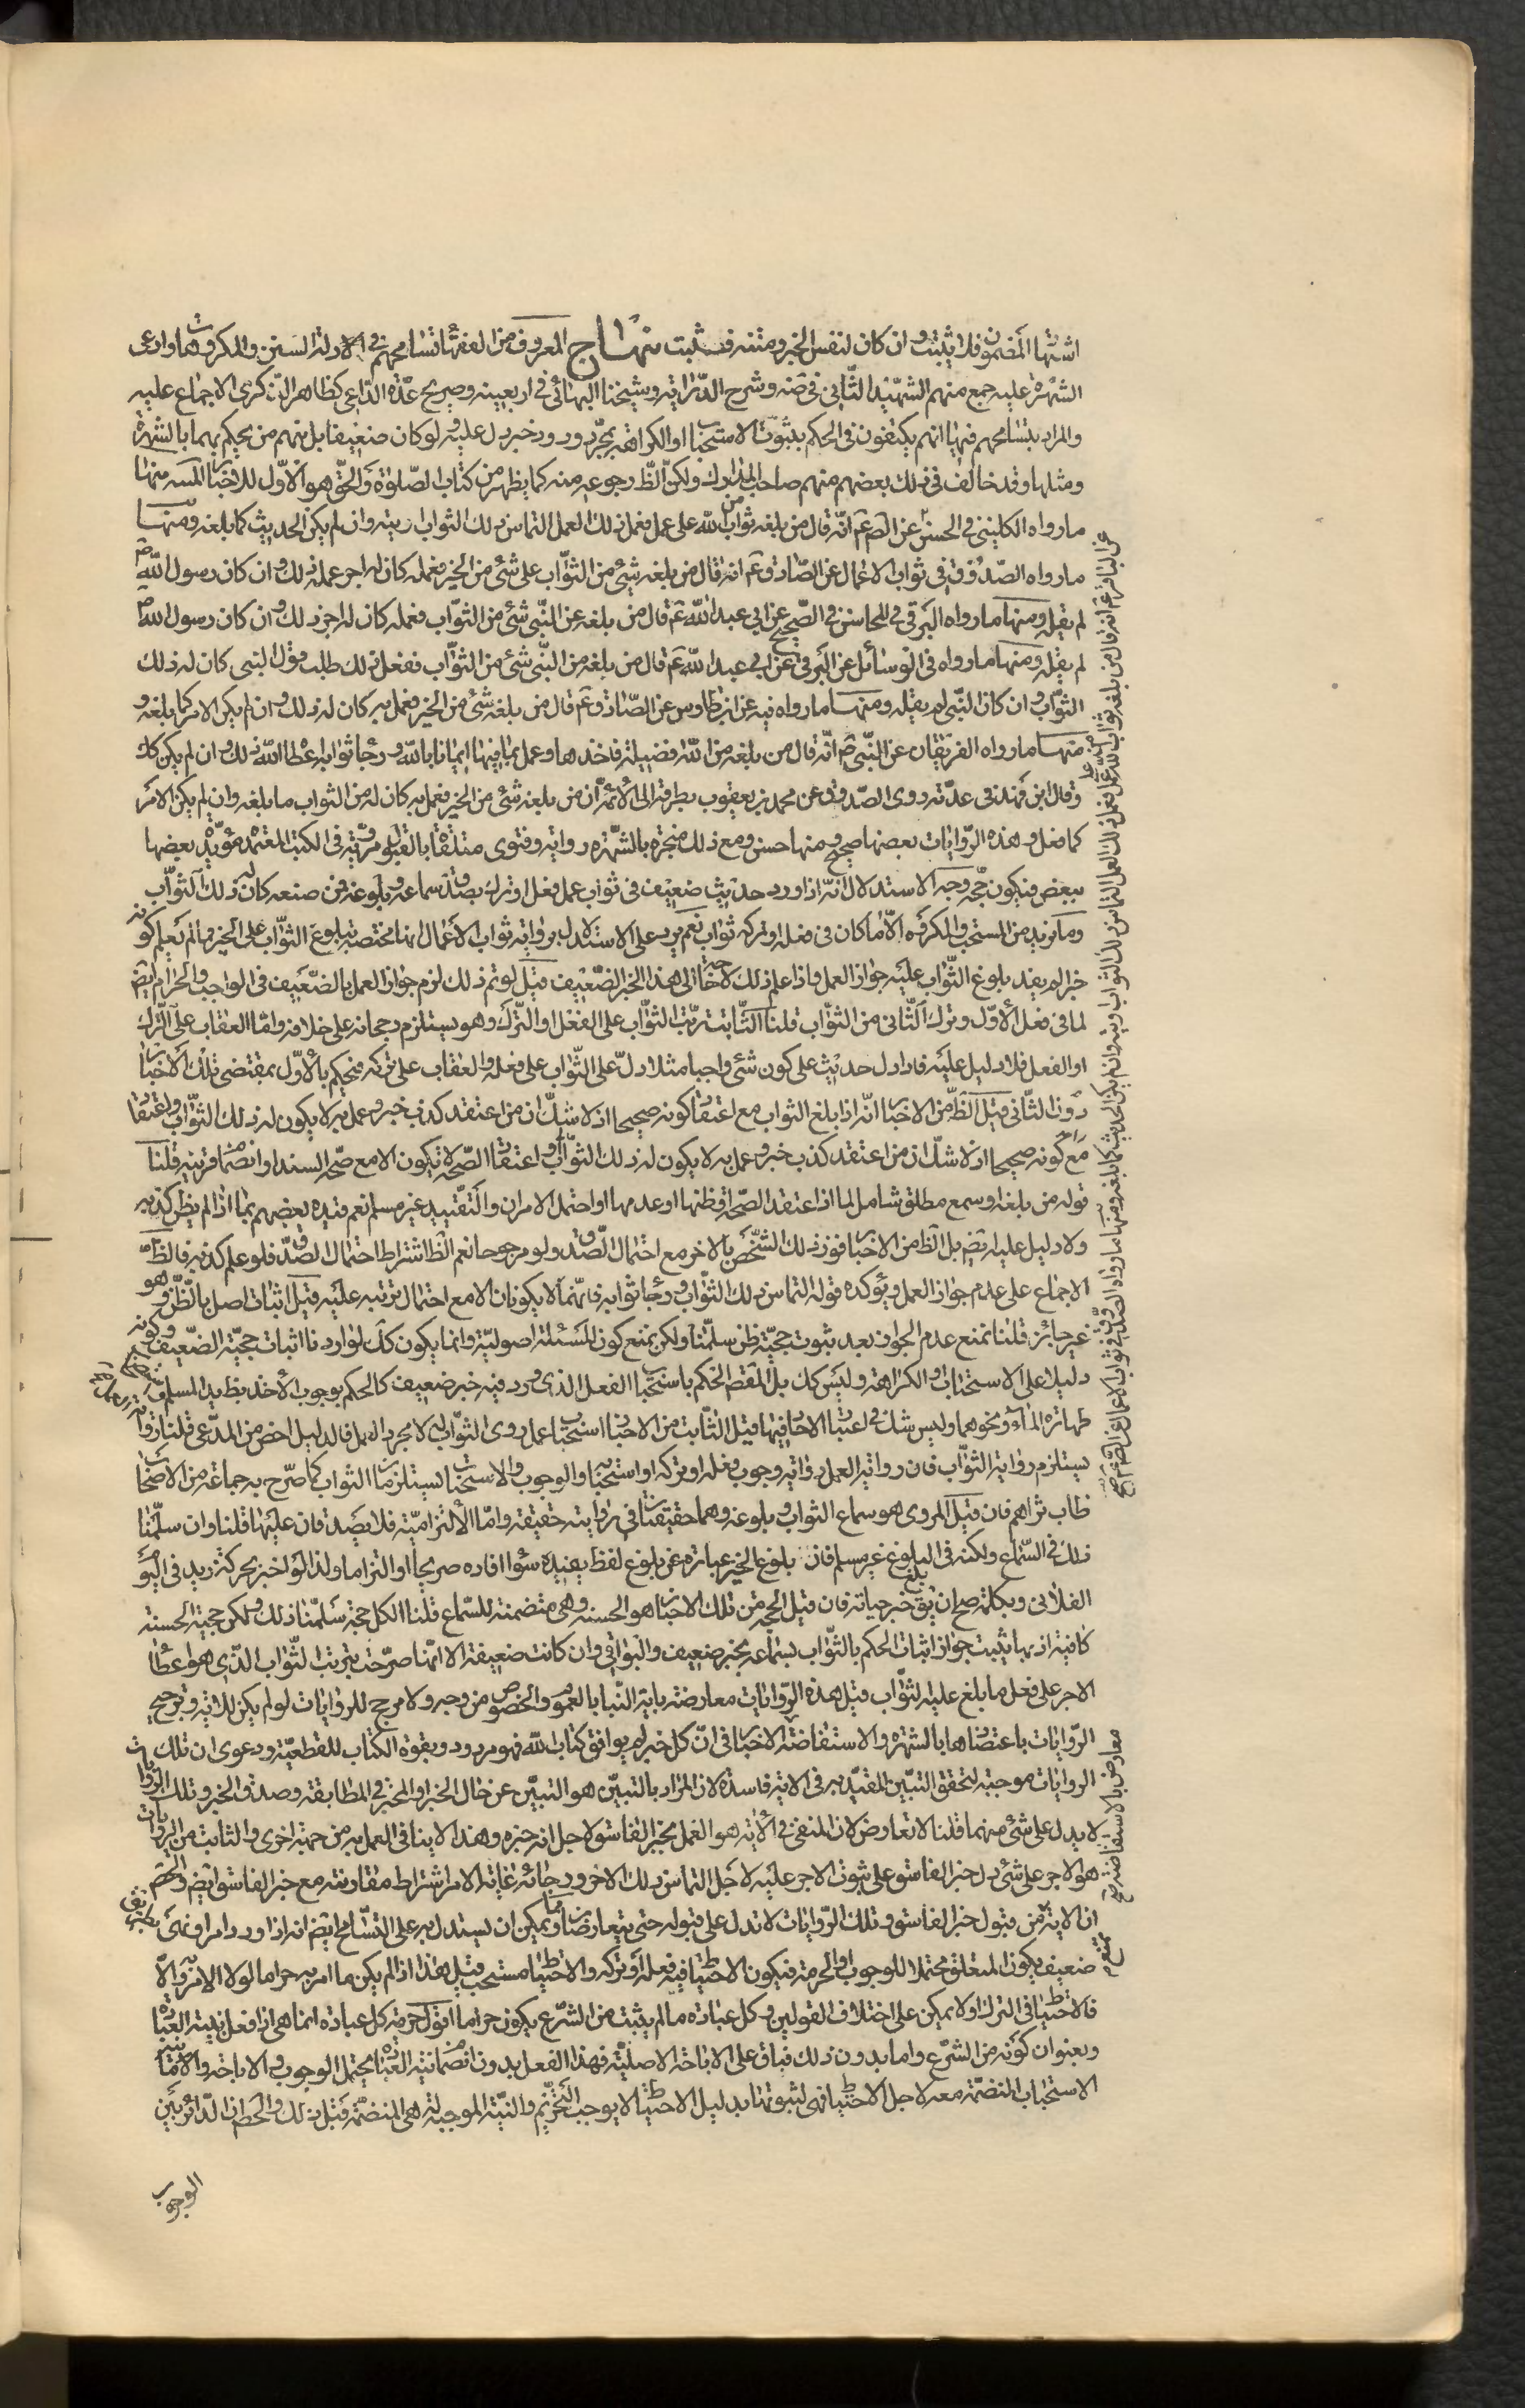 اشتها المضمون فلا يثبت وان كان لنفس الخبر ومتنه فيثبت منهاج المعروف من الفقهاء تسامحهم في الادلة السنن والمكروهات وادعى
الشهرة عليه جمع منهم الشهيد الثاني في ضه وشرح الدراية وشيخنا البهائي في اربعينه وصريح عدة الداعي كظاهر الذكرى الاجماع عليه
والمراد بتسامحهم فيها انهم يكتفون في الحكم بثبوت الاستحباب او الكراهة بمجرد ورود خبر دل عليه ولو كان ضعيفا بل منهم من يحكم بهما بالشهرة
ومثلها وقد خالف في ذلك بعضهم منهم صاحب المدارك ولكن الظ رجوعه منه كما يظهر من كتاب الصلوة والحق هو الاول للاخبار منها
ما رواه الكليني في الحسن عن الص ع انه قال من بلغه ثواب من الله على عمل فعمل ذلك العمل التماس ذلك الثواب اوتيه وان لم يكن الحديث كما بلغه ومنها
ما رواه الصدوق في ثواب الاعمال عن الصادق ع انه قال من بلغه شئ من الثواب على شئ من الخير فعمله كان له اجر عمله ذلك وان كان رسول الله ص
لم يقله ومنها ما رواه البرقي في المحاسن في الصحيح عن ابي عبد الله ع قال من بلغه عن النبي شئ من الثواب فعمله كان له اجر ذلك وان كان رسول الله ص
لم يقله ومنها ما رواه في الوسائل عن البرقي عن ابي عبد الله ع قال من بلغه من النبي شئ من الثواب ففعل ذلك طلب قول النبي كان له ذلك
الثواب وان كان النبي لم يقله ومنها ما رواه فيه عن ابن طاوس عن الصادق ع قال من بلغه شئ من الخير فعمل به كان له ذلك وان لم يكن الامر كما بلغه و
منها ما رواه الفريقان عن النبي ص انه قال من بلغه من الله فضيلة فاخذها وعمل بما فيها ايمانا بالله ورجاء ثوابه اعطاه الله ذلك وان لم يكن كك
وقال ابن فهد في عدته روى الصدوق عن محمد بن يعقوب بطرقه الى الائمة ان من بلغه شئ من الخير فعمل به كان له من الثواب ما بلغه وان لم يكن الامر
كما فعل وهذه الروايات بعضها صحيح ومنها حسن ومع ذلك منجبرة بالشهرة رواية وفتوى متلقاة بالقبول مروية في الكتب المعتمدة مؤيد بعضها
ببعض فيكون حجة وجه الاستدلال انه اذا ورد حديث ضعيف في ثواب عمل فعل او ترك يصدق سماعه وبلوغه فمن صنعه كان له ذلك الثواب
وما نريد من المستحب والمكروه الا ما كان في فعله او تركه ثواب نعم يرد على الاستدلال برواية ثواب الاعمال انها مختصة ببلوغ الثواب على الخير فما لم يعلم كونه
خيرا لم يفد بلوغ الثواب عليه جواز العمل واذا علم ذلك لا حاجة الى هذا الخبر الضعيف قيل لو تم ذلك لزم جواز العمل بالضعيف في الواجب والحرام ايضم
لما في فعل الاول وترك الثاني من الثواب قلنا الثابت ترتب الثواب على الفعل او الترك وهو يستلزم رجحانه على خلافه واما العقاب على الترك
او الفعل فلا دليل عليه فاذا دل حديث على كون شئ واجبا مثلا دل على الثواب على فعله والعقاب على تركه فيحكم بالاول بمقتضى تلك الاخبار
دون الثاني قيل الظ من الاخبار انه اذا بلغ الثواب مع اعتقاد كونه صحيحا اذ لا شك ان من اعتقد كذب خبر وعمل به لا يكون له ذلك الثواب واعتقاد
مع كونه صحيحا اذ لا شك ان من اعتقد كذب خبر وعمل به لا يكون له ذلك الثواب واعتقاد الصحة لا تكون الا مع صحة السند او انضمام قرينة قلنا
قوله من بلغه او سمع مطلق شامل لما اذا اعتقد الصحة او ظنها او عدمها او احتمل الامران والتقييد غير مسلم نعم قيده بعضهم بما اذا لم يظن كذبه
ولا دليل عليه ايضم بل الظ من الاخبار فوز ذلك الشخص بالاجر مع احتمال الصدق ولو مرجوحا نعم الظ اشتراط احتمال الصدق فلو علم كذبه فالظ
الاجماع على عدم جواز العمل ويؤكده قوله التماس ذلك الثواب ورجاء ثوابه فانهما لا يكونان الا مع احتمال ترتبه عليه قيل اثبات اصل بالظن وهو
غير جائز قلنا نمنع عدم الجواز بعد ثبوت حجية ظن سلمنا ولكن نمنع كون المسئلة اصولية وانما يكون كك لو اردنا اثبات حجية الضعيف وكونه
دليلا على الاستحباب والكراهة وليس كك بل المقصد الحكم باستحباب الفعل الذي ورد فيه خبر ضعيف كالحكم بوجوب الاخذ بظ يد المسلم في
طهارة الماء ونحوهما وليس شك في اعتبار الاحاد فيها قيل الثابت من الاخبار استحباب عمل روى الثواب له لا مجرد العمل فالدليل اخص من المدعى قلنا رواية
يستلزم رواية الثواب فان رواية العمل رواية وجوب فعله او تركه او استحبابه والوجوب والاستحباب يستلزمان الثواب كما صرح به جماعة من الاصحاب
طاب ثراهم فان قيل المروي هو سماع الثواب وبلوغه وهما حقيقتان في روايته حقيقة واما الالتزامية فلا يصدقان عليها قلنا وان سلمنا
ذلك في السماع ولكنه في البلوغ غير مسلم فان بلوغ الخبر عبارة عن بلوغ لفظ يفيده سواء افاده صريحا او التزاما ولذا لو اخبر بحركة زيد في اليوم
الفلاني وبكلمته صح ان يق بلغ خبر حياته فان قيل الحجة من تلك الاخبار هو الحسنة وهي متضمنة للسماع قلنا الكل حجة سلمنا ذلك ولكن حجية الحسنة
كافية اذ بها يثبت جواز اثبات الحكم بالثواب بسماعه بخبر ضعيف والبواقي وان كانت ضعيفة الا انها صرحت بترتب الثواب الذي هو اعطاء
الاجر على فعل ما بلغ عليه الثواب قيل هذه الروايات معارضة باية النبا بالعموم والخصوص من وجه ولا مرجح للروايات لو لم يكن للاية وترجيح
الروايات باعتضادها بالشهرة والاستفاضة الاخبار في ان كل خبر لم يوافق كتاب الله فهو مردود وبقوة الكتاب للقطعية ودعوى ان تلك
الروايات موجبة لتحقق التبين المقيد به في الاية فاسدة لان المراد بالتبين هو التبين عن حال الخبر او المخبر في المطابقة وصدق الخبر وتلك الروايات
لا يدل على شئ منهما قلنا لا تعارض لان المنفي في الاية هو العمل بخبر الفاسق لاجل انه خبره وهذا لا ينافي العمل به من جهة اخرى والثابت من الروايات
هو الاجر على شئ دل خبر الفاسق على ثبوت الاجر عليه لاجل التماس ذلك الاجر ورجائه غاية الامر اشتراط مقارنته مع خبر الفاسق ايضم والحاصل
ان الاية تمنع من قبول خبر الفاسق وتلك الروايات لا تدل على قبوله حتى يتعارضا ويمكن ان يستدل به على التسامح ايضم انه اذا ورد امر او نهي بطريق
ضعيف يكون المتعلق محتملا للوجوب او الحرمة فيكون الاحتياط فيه فعله او تركه والاحتياط مستحب قيل هذا اذا لم يكن ما امر به حراما لولا الامر به والا
فالاحتياط في الترك او لا يمكن على اختلاف القولين وكل عبادة ما لم يثبت من الشرع يكون حراما اقول حرمة كل عبادة انما هي اذا فعل بنية العبادة
وبعنوان كونه من الشرع واما بدون ذلك فباق على الاباحة الاصلية فهذا الفعل بدون انضمام نية العبادة يحتمل الوجوب والاباحة والامانية
الاستحباب المنضمة معه لاجل الاحتياط فهي لثبوتها بدليل الاحتياط لا يوجب التحريم والنية الموجبة له هي المنضمة قبل ذلك والحاصل ان الدائر بين
الوجوب
عن الباقر ع انه قال من بلغه ثواب من الله على عمل فعمل ذلك العمل التماس ذلك الثواب اوتيه وان لم يكن الحديث كما بلغه ومنها ما رواه الصدوق في ثواب الاعمال عن الص ع صح
معارض بالاستفاضة صح